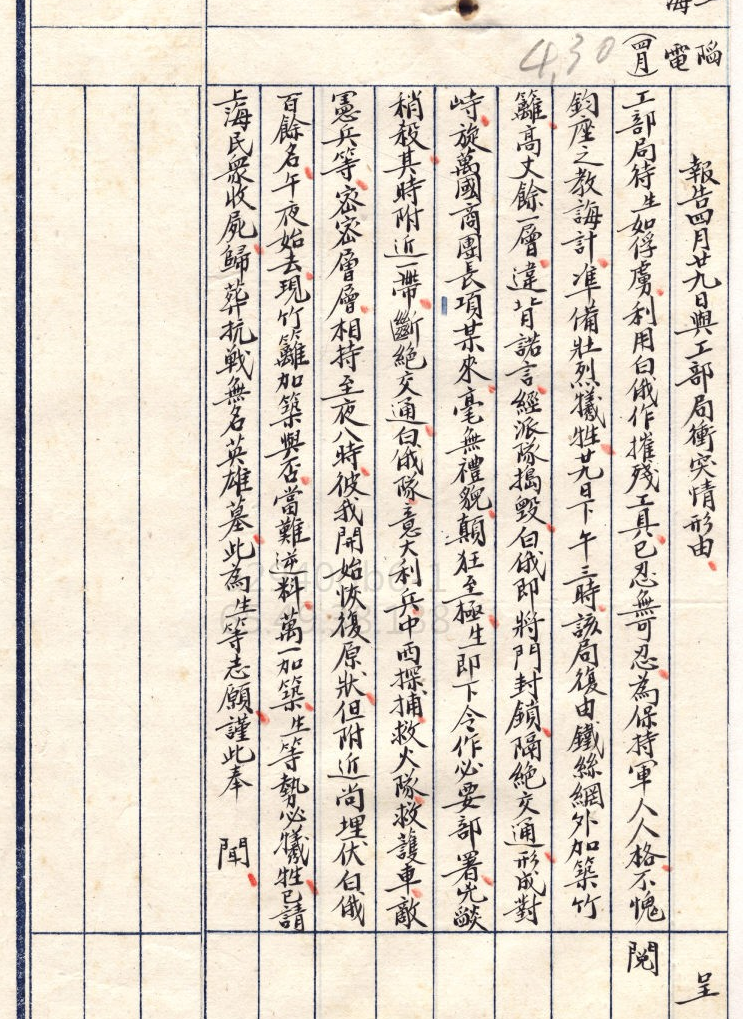 報告四月廿九日與工部局衝突情形由
呈
閱
電
(四月)
4,30
工部局待生如俘虜利用白俄作摧殘工具已忍無可忍為保持軍人人格不愧
鈞座之教誨計準備壯烈犧牲廿九日下午三時該局復由鐵絲網外加築竹
籬高丈餘一層違背諾言經派隊搗毀白俄即將門封鎖隔絕交通形成對
峙旋萬國商團長項某來毫無禮貌顛狂至極生即下令作必要部署兇燄
稍殺其時附近一帶斷絕交通白俄隊意大利兵中西探捕救火隊救護車敵
憲兵等密密層層相持至夜八時彼我開始恢復原狀但附近尚埋伏白俄
百餘名午夜始去現竹籬加築與否當難逆料萬一加築生等勢必犧牲已請
上海民眾收屍歸葬抗戰無名英雄墓此為生等志願謹此奉 聞